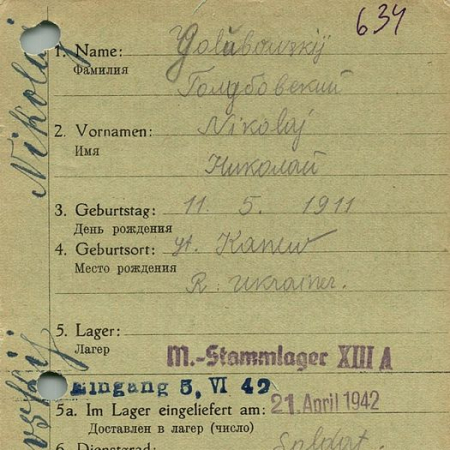 634
1. Name: Golubowskij
Фамилия Голубовский
2. Vornamen: Nikolaj
Имя Николай
3. Geburtstag: 11. 5. 1911
День рождения
4. Geburtsort: st. Kanew
Место рождения R. Ukrainer.
5. Lager:
Лагерь M.-Stammlager XIII A
Eingang 5, VI 42
5a. Im Lager eingeliefert am: 21. April 1942
Доставлен в лагерь (число)
6. Dienstgrad: Soldat.
Nikolaj